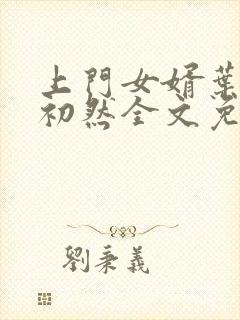 上門女婿葉
初然全文免
劉秉義